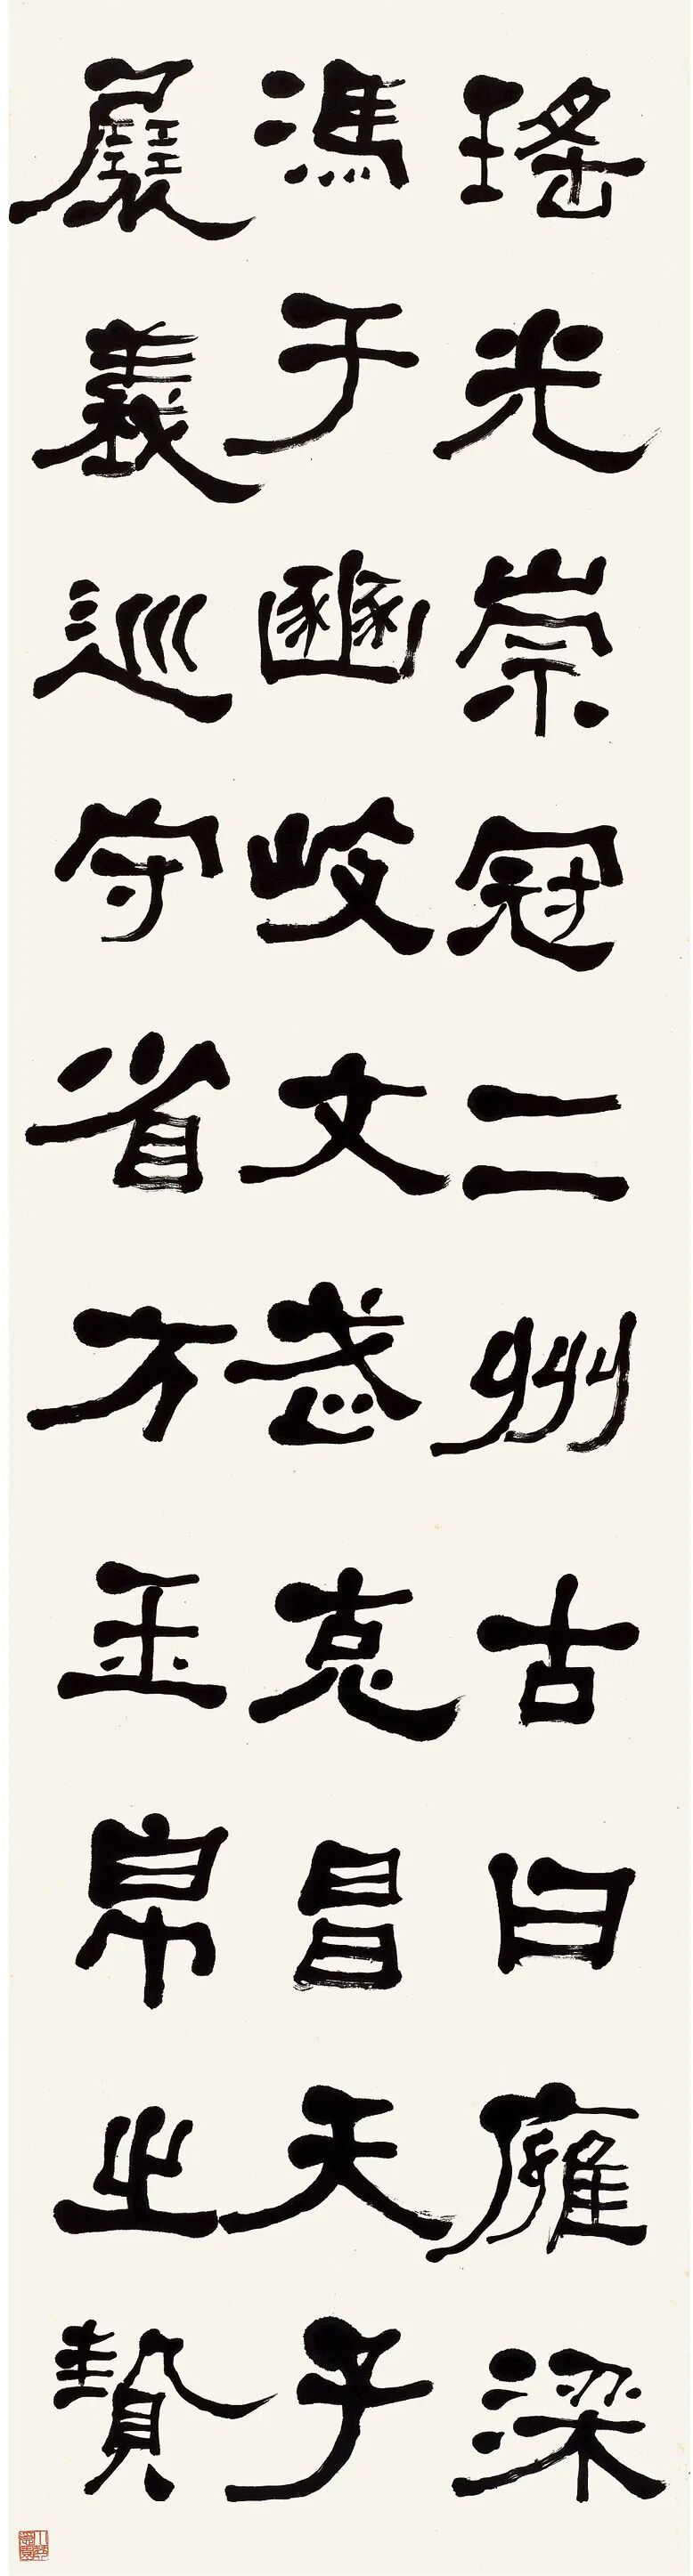 瑤光崇冠二州古曰雍梁
馮于豳岐文武克昌天子
展義巡守省方玉帛之贄